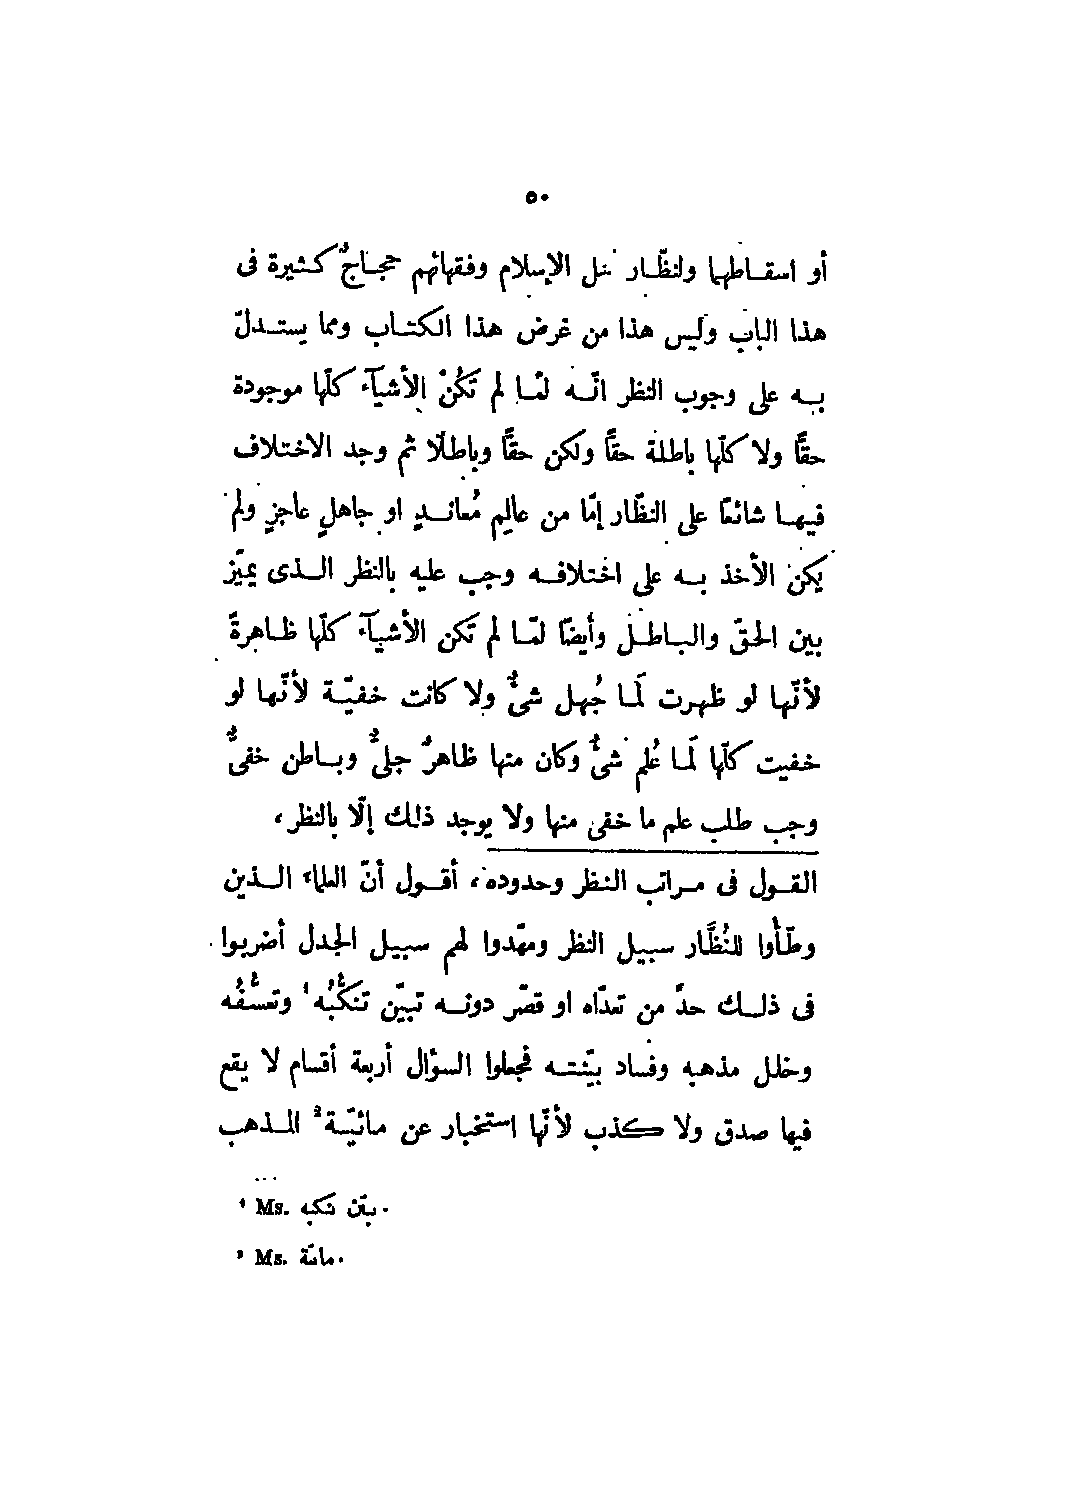 ٥٠
أو اسقاطها ولنظّار اهل الإسلام وفقهائهم حجاجٌ كثيرة فى
هذا الباب وليس هذا من غرض هذا الكتاب ومما يستدلّ
به على وجوب النظر انّه لمّا لم تَكُنْ الأشيآء كلّها موجودة
حقًّا ولا كلّها باطلة حقًّا ولكن حقًّا وباطلًا ثم وجد الاختلاف
فيها شائعًا على النظّار إمّا من عالِمٍ مُعاندٍ او جاهلٍ عاجزٍ ولم
يكن الأخذ به على اختلافه وجب عليه بالنظر الذى يميّز
بين الحقّ والباطل وأيضًا لمّا لم تكن الأشيآء كلّها ظاهرةً
لأنّها لو ظهرت لَما جُهل شىٌ ولا كانت خفيّة لأنّها لو
خفيت كلّها لَما عُلم شىٌ وكان منها ظاهرٌ جلىٌّ وباطن خفىٌّ
وجب طلب علم ما خفى منها ولا يوجد ذلك إلّا بالنظر،
القول فى مراتب النظر وحدوده، أقول أنّ العلماء الذين
وطّأوا للنُظَّار سبيل النظر ومهّدوا لهم سبيل الجدل أضربوا
فى ذلك حدًّ من تعدّاه او قصّر دونه تبيّن تنكُّبُه ¹ وتعسُّفُه
وخلل مذهبه وفساد بيّنته فجعلوا السؤال أربعة أقسام لا يقع
فيها صدق ولا كذب لأنّها استخبار عن مائيّة ² المذهب
¹ Ms. .
² Ms. .